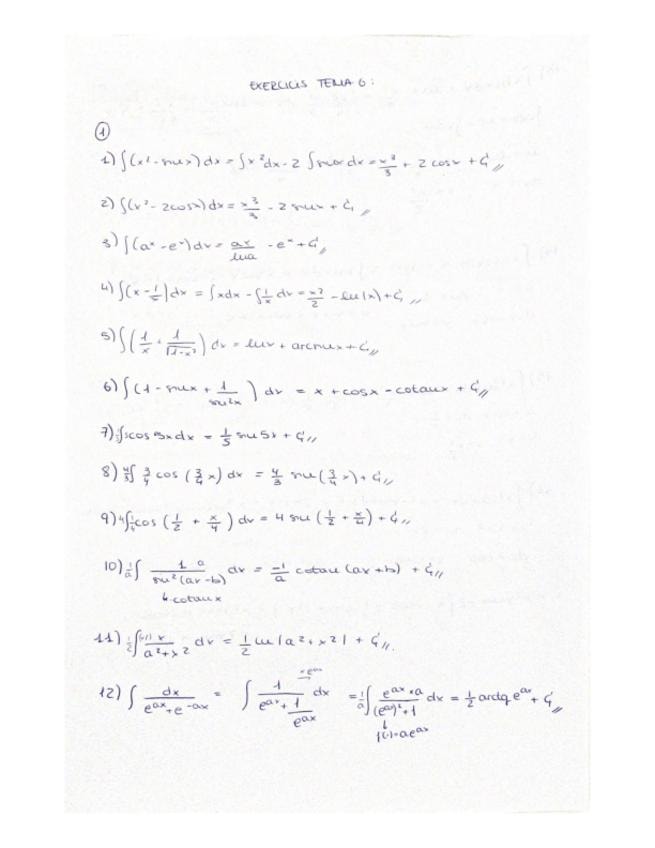 EXERCICIS TEMA 6:
①
1) ∫(x² - sin x) dx = ∫x² dx - 2 ∫sin x dx = x³/3 + 2 cos x + C //
2) ∫(x² - 2cosx) dx = x³/3 - 2 sin x + C //
3) ∫(aˣ - eˣ) dx = aˣ/ln a - eˣ + C //
4) ∫(x - 1/x) dx = ∫x dx - ∫1/x dx = x²/2 - ln(x) + C //
5) ∫(1/x + 1/√(1-x²)) dx = ln x + arcsin x + C //
6) ∫(1 - sin x + 1/sin²x) dx = x + cos x - cotan x + C //
7) ∫5cos 5x dx = 1/5 sin 5x + C //
8) 4/3 ∫ 3/4 cos (3/4 x) dx = 4/3 sin (3/4 x) + C //
9) 4∫1/4 cos (1/2 + x/4) dx = 4 sin (1/2 + x/4) + C //
10) 1/a ∫ 1·a/sin²(ax-b) dx = -1/a cotan (ax+b) + C //
↳ -cotan x
11) 1/2 ∫ (2) x/(a²+x²) dx = 1/2 ln |a²+x²| + C //
12) ∫ dx/(eᵃˣ+e⁻ᵃˣ) = ∫ 1/(eᵃˣ + 1/eᵃˣ) dx ·eᵃˣ = 1/a ∫ eᵃˣ·a/((eᵃˣ)²+1) dx = 1/2 arctg eᵃˣ + C //
f'(x)=aeᵃˣ